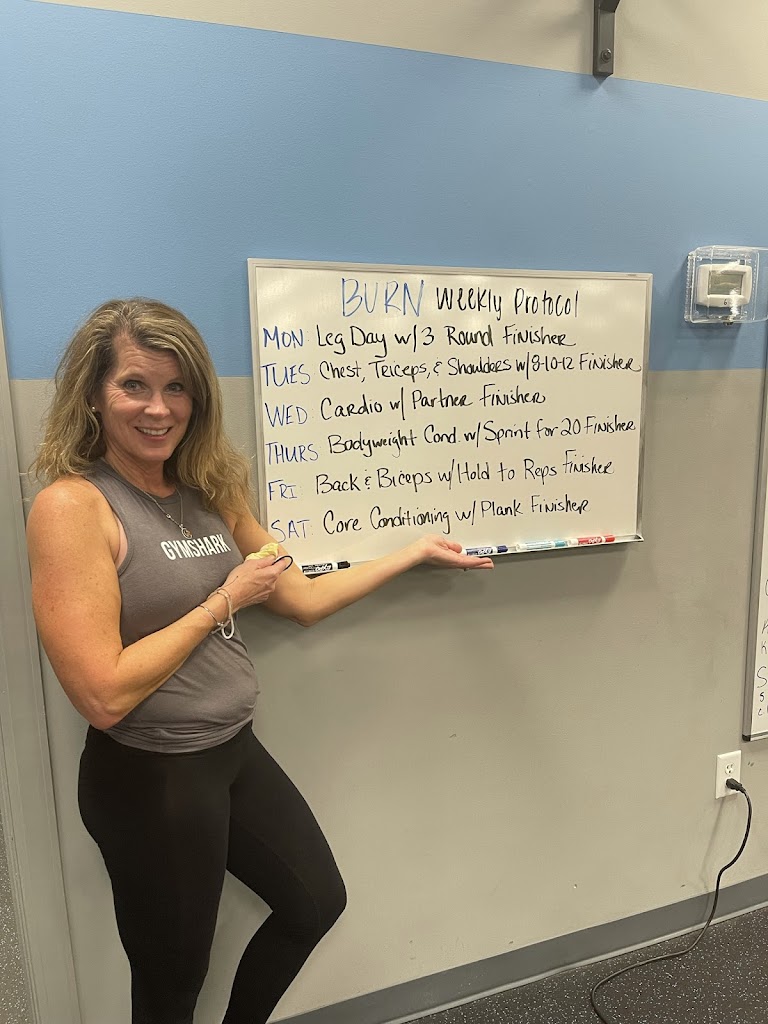 BURN Weekly Protocol
MON Leg Day w/3 Round Finisher
TUES Chest, Triceps, & Shoulders w/8-10-12 Finisher
WED Cardio w/ Partner Finisher
THURS Bodyweight Cond. w/Sprint for 20 Finisher
FRI Back & Biceps w/Hold to Reps Finisher
SAT Core Conditioning w/Plank Finisher
GYMSHARK